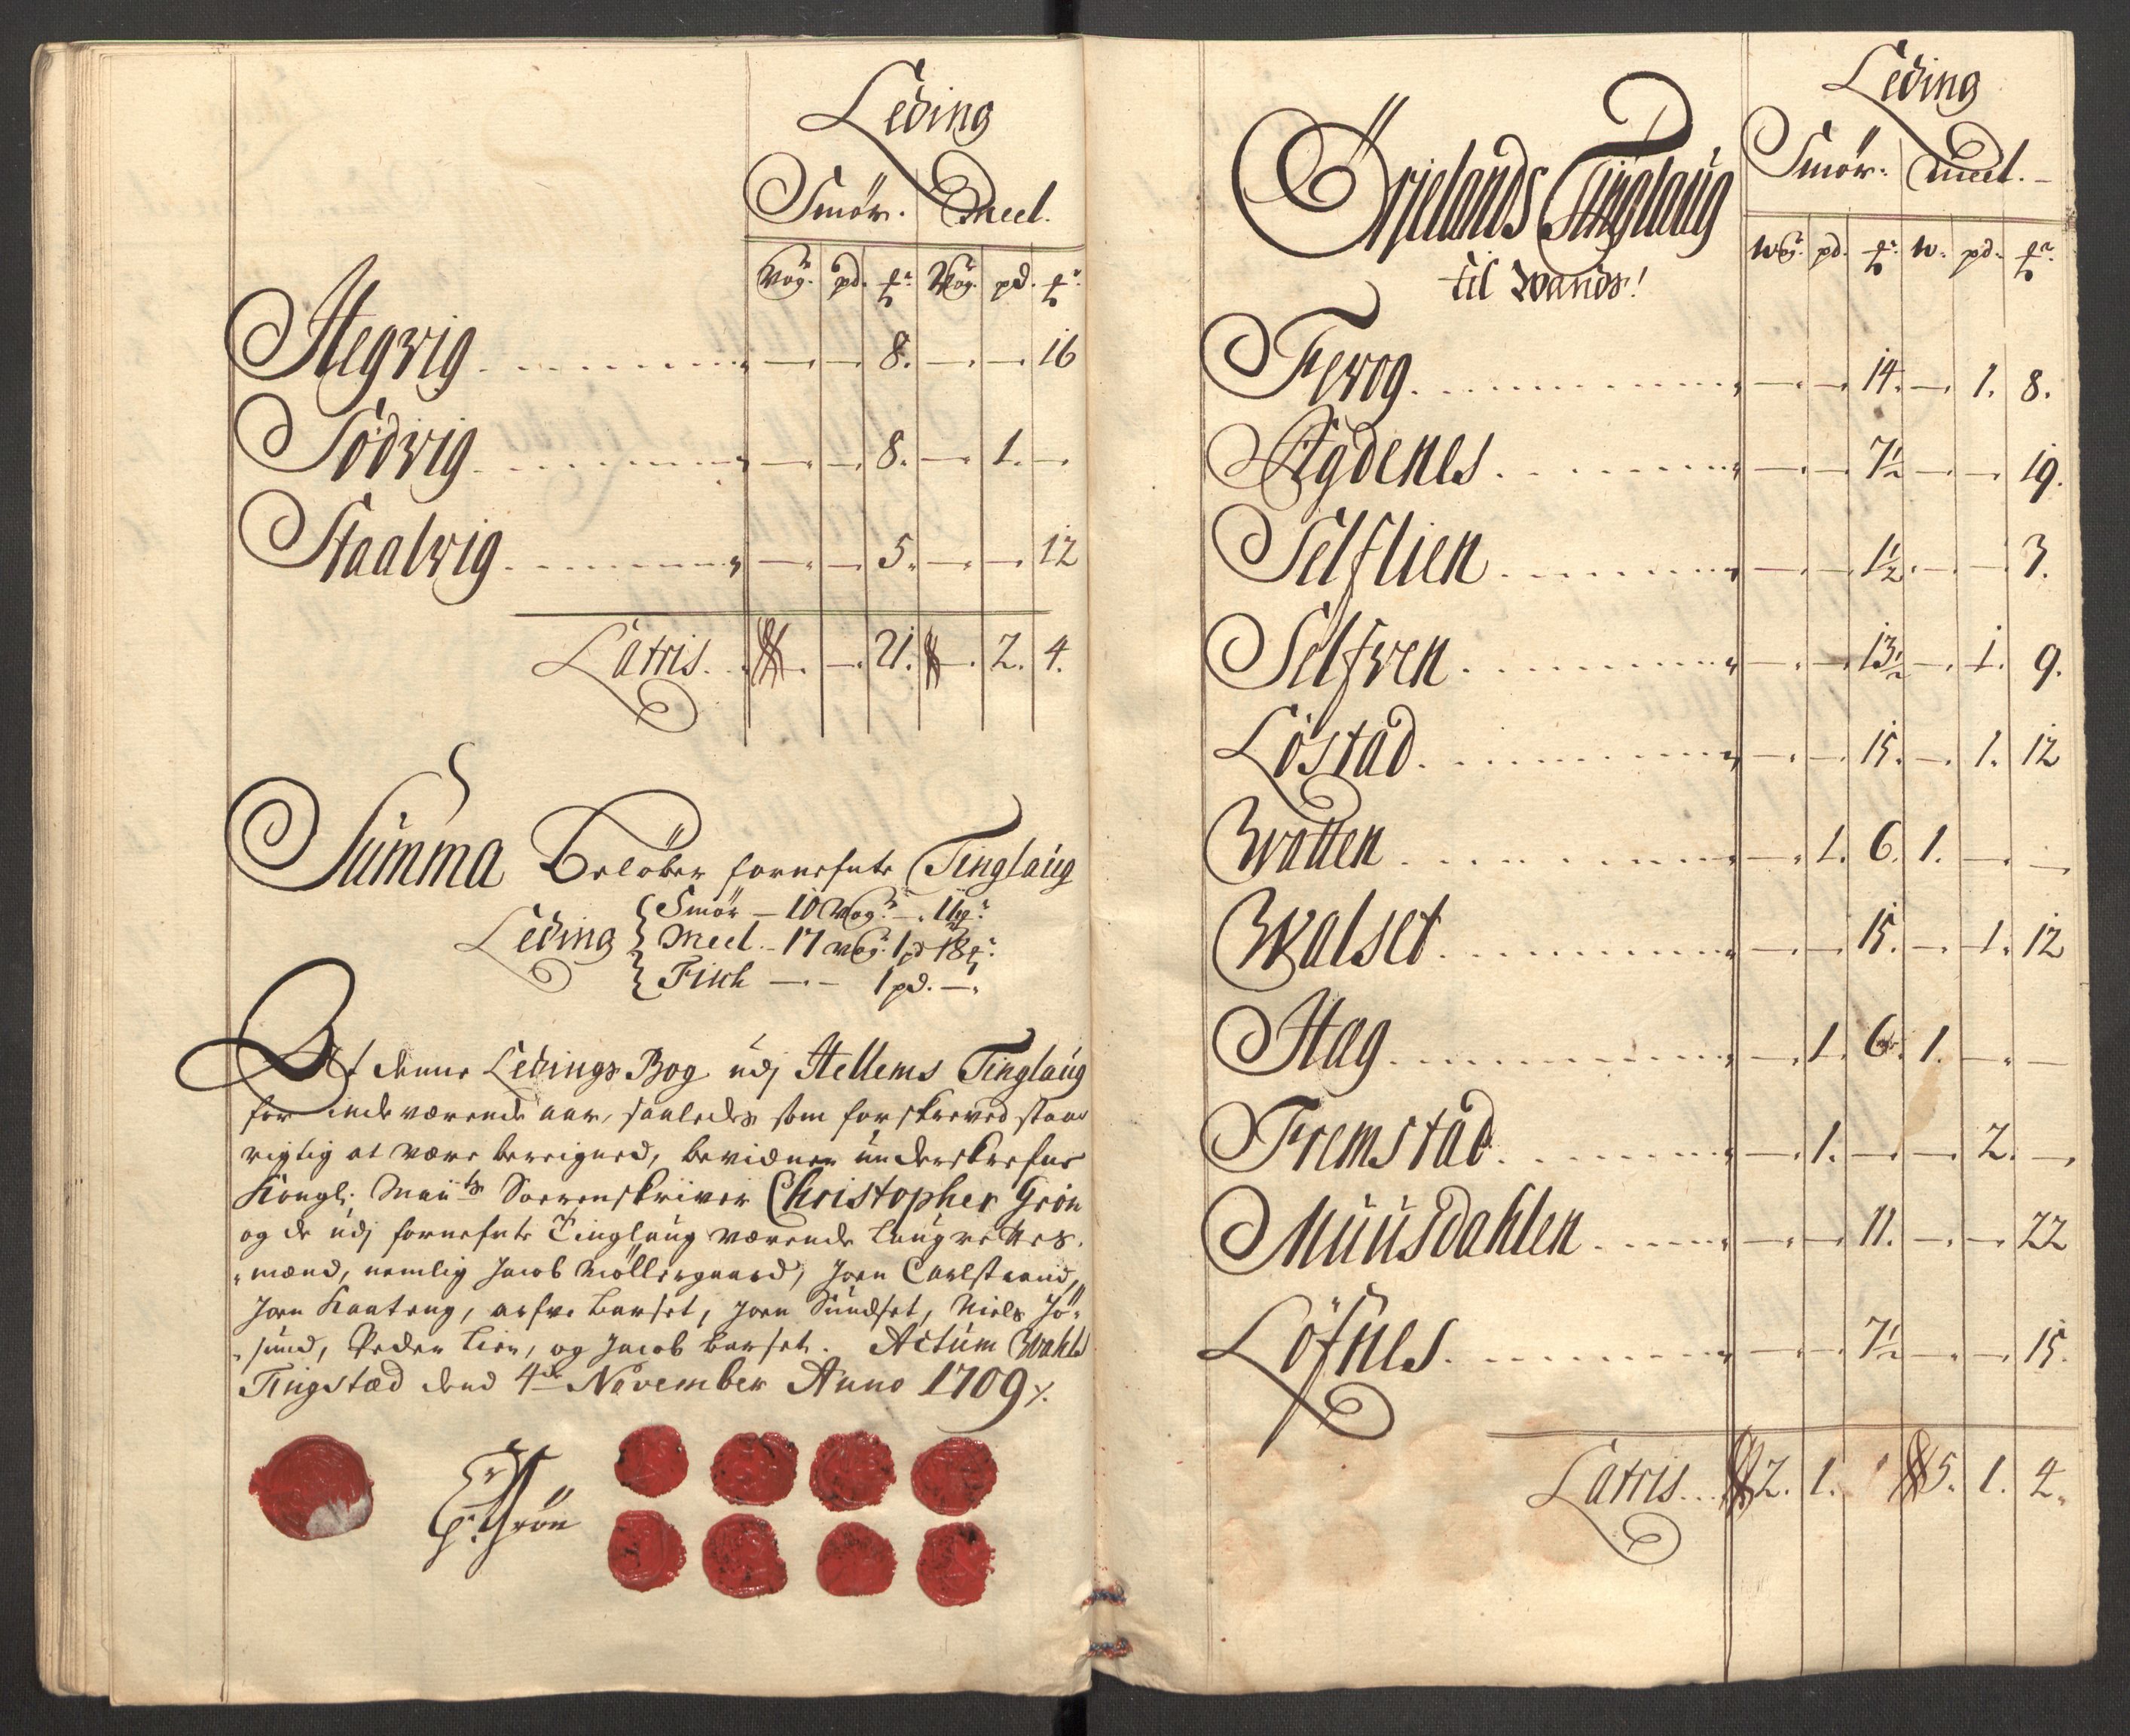 Leding
Smör. Meel.
Wog. pd. ℔r Wog. pd. ℔r
Hegvig — — 8. — — 16
Södvig — — 8. — 1. —
Staalvig — — 5. — — 12
Latris. — 21. — 2. 4.
Summa Belöber fornefnte Tinglaug
Leding
Smör — 10 Wog. — 11 ℔r
Meel — 17 Wog. 1 pd 18 ℔r
Fisk — 1 pd. —
At denne Ledings Bog udj Hellems Tinglaug
for indeværende aar, saaledes som forskreved staar
rigtig at være beregned, bevidner underskrefne
Kongl. May:ts Sorenskriver Christopher Grön
og de udj fornefnte Tinglaug værende Laugrettes.
mænd, nemlig Jacob Möllergaard, Joen Carlstrand,
Joen Kaatrug, Arfve Barset, Joen Sundset, Niels Jö-
sund, Peder Lien, og Jacob Barset. Actum Wahls
Tingstæd dend 4de November Anno 1709 ⁒
Grön
Leding
Smör. Meel.
Örjelands Tinglaug
Wog. pd. ℔r W. pd. ℔r
til Wands!
Fevog — — 14. — 1. 8.
Agdenes — — 7½ — — 19.
Selflien — — 1½. — — 3.
Selfven — — 13½ — 1. 9.
Löstad — — 15. — 1. 12
Watten — 1. 6. 1. — —
Walset — — 15. — 1. 12
Hag — 1. 6. 1. — —
Fremstad — 1. — — 2. —
Muusdahlen — — 11. — — 22
Löfnes — — 7½ — — 15.
Latris. 2. 1. 1 5. 1. 4.